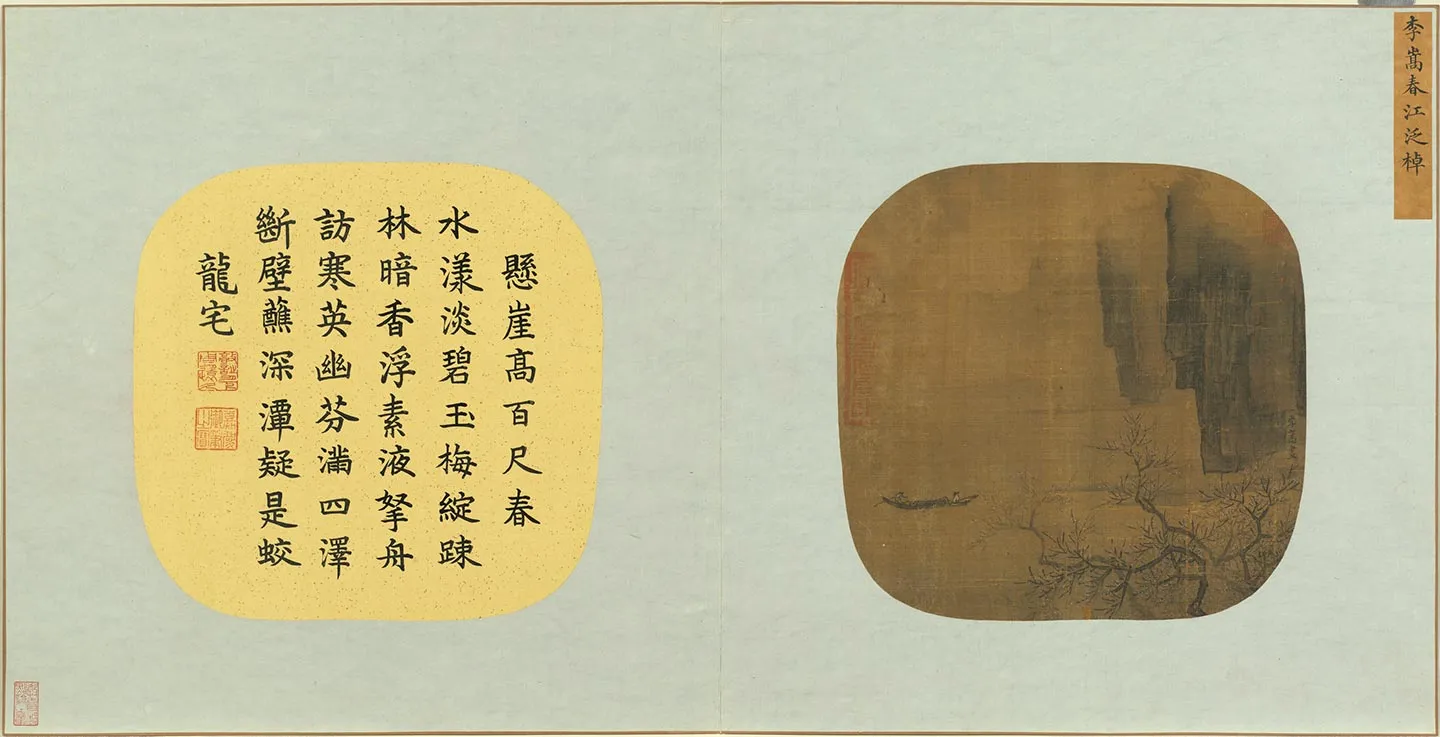 李嵩春江泛棹
李嵩
懸崖髙百尺春
水漾淡碧玉梅綻踈
林暗香浮素液拏舟
訪寒英幽芬滿四澤
斷壁蘸深潭疑是蛟
龍宅